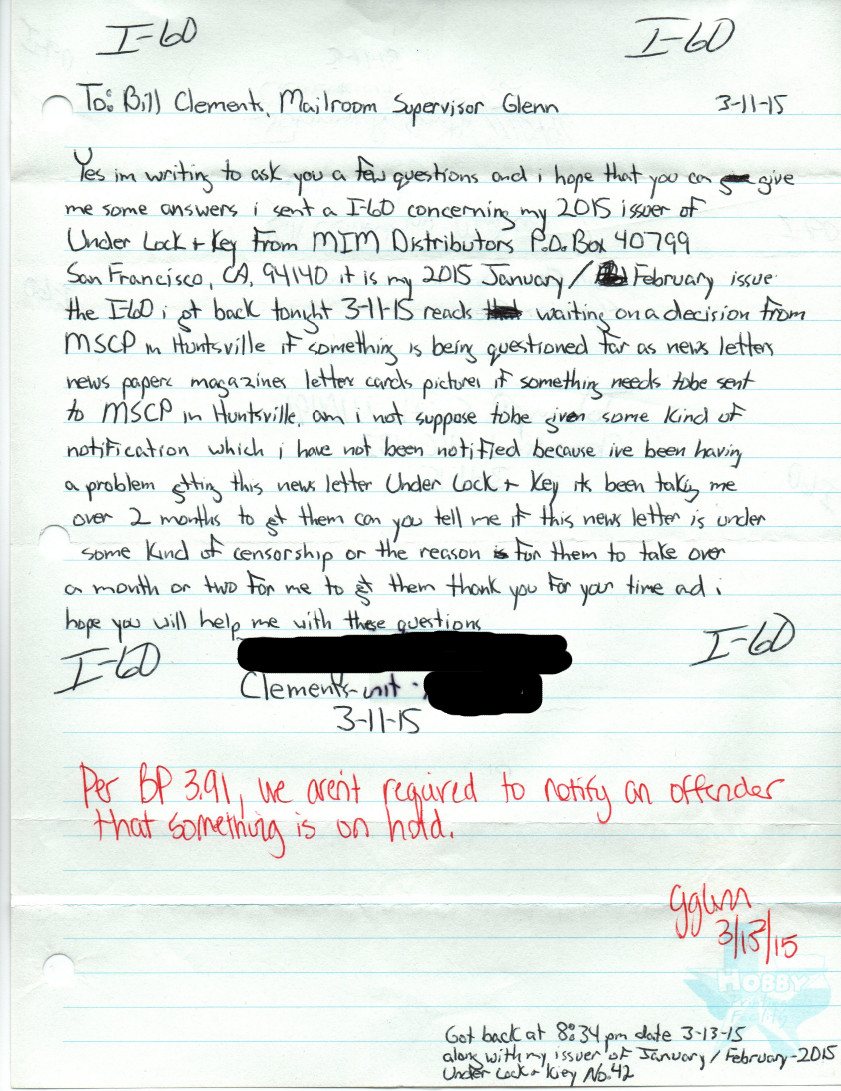 I-60 I-60
To: Bill Clements, Mailroom Supervisor Glenn 3-11-15
Yes im writing to ask you a few questions and i hope that you can give
me some answers i sent a I-60 concerning my 2015 issuer of
Under Lock + Key From MIM Distributors P.O. Box 40799
San Francisco, CA, 94140 it is my 2015 January / February issue
the I-60 i got back tonight 3-11-15 reads waiting on a decision from
MSCP in Huntsville if something is being questioned far as news letters
news papers magazines letter cards pictures if something needs tobe sent
to MSCP in Huntsville, am i not suppose tobe given some kind of
notification which i have not been notified because ive been having
a problem getting this news letter Under Lock + Key its been taking me
over 2 months to get them can you tell me if this news letter is under
some kind of censorship or the reason for them to take over
a month or two for me to get them thank you for your time and i
hope you will help me with these questions
I-60 I-60
Clements-unit
3-11-15
Per BP 3.91, we aren't required to notify an offender
that something is on hold.
gglenn
3/13/15
HOBBY
Facility
Got back at 8:34 pm date 3-13-15
along with my issuer of January / February-2015
Under Lock + Key No. 42